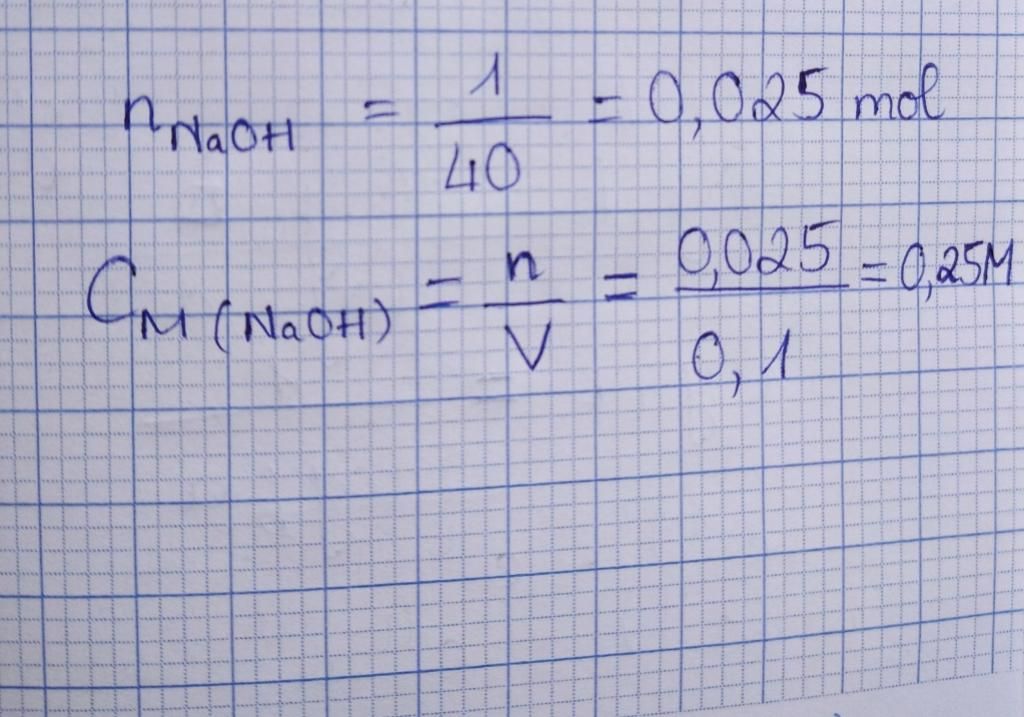 n NaOH = 1/40 = 0,025 mol
C M (NaOH) = n/V = 0,025/0,1 = 0,25M